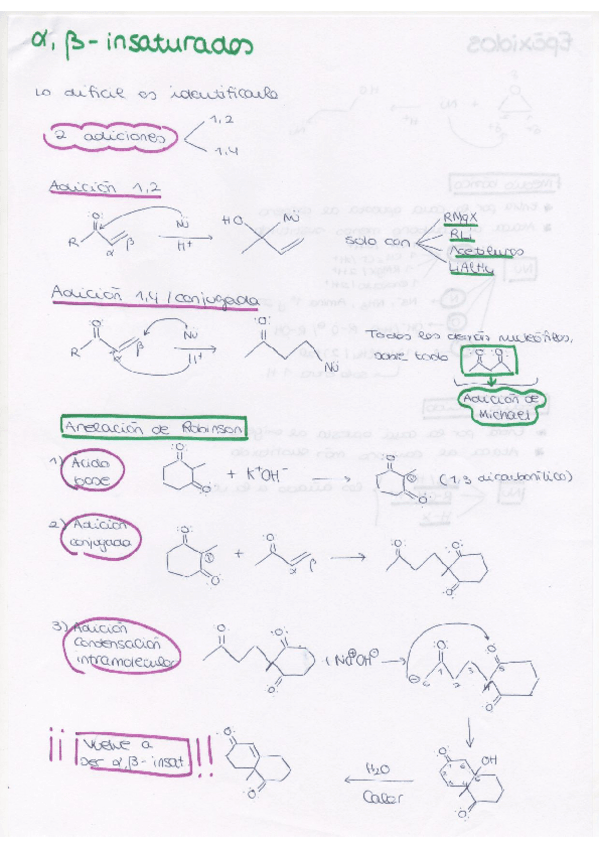 α, β - insaturados
Lo dificil es identificarlo
2 adiciones
1,2
1,4
Adición 1,2
O
R
α
β
Nu
H⁺
HO
Nu
solo con
RMgX
RLi
Acetiluros
LiAlH4
Adición 1,4 / conjugada
O
R
α
β
Nu
H⁺
O
Nu
Todos los demás nucleófilos,
sobre todo
O
O
Adición de
Michael
Anelación de Robinson
1) Ácido
base
O
O
+ K⁺OH⁻
O
O
(1,3 dicarbonílico)
2) Adición
conjugada
O
O
+
O
α
β
O
O
O
3) Adición
condensación
intramolecular
O
O
O
O
O
O
1
2
3
4
5
OH
O
O
H2O
Calor
¡¡ Vuelve a
ser α,β- insat !!
O
O